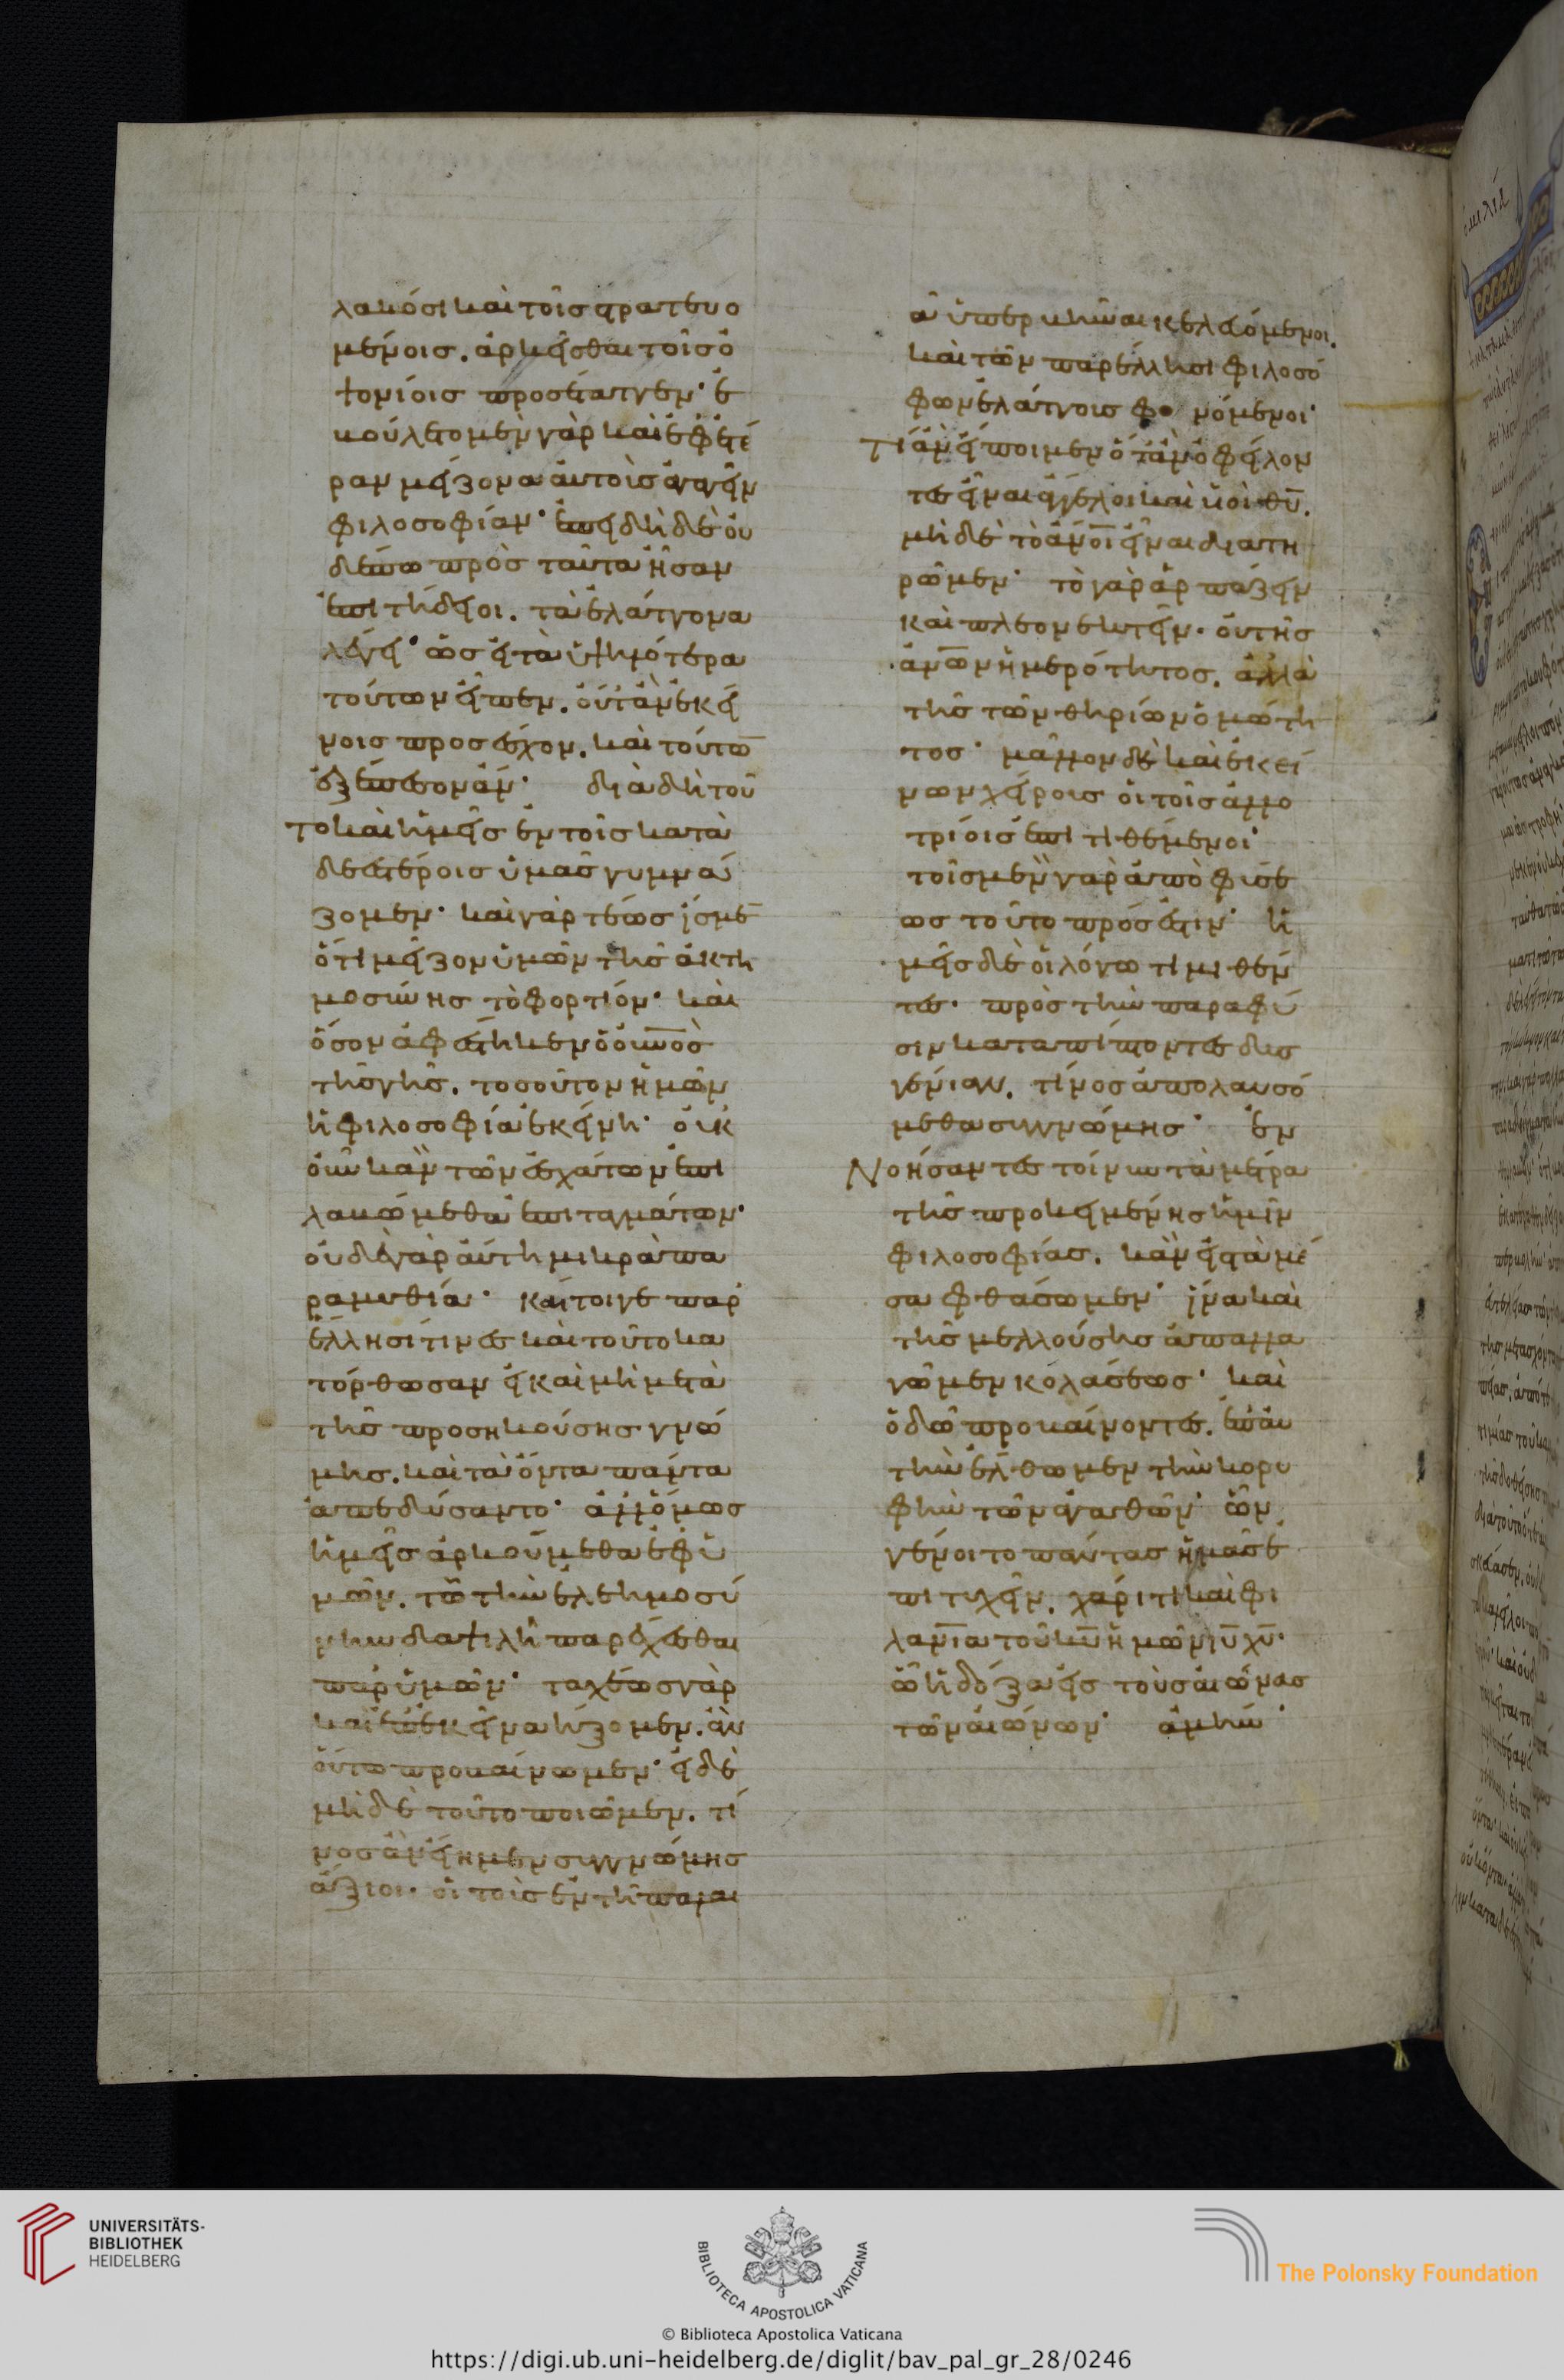 λακόσι καὶ τοῖς στρατευο
μένοις. ἀρκεῖσθαι τοῖς ὀ
ψονίοις προσέταττεν· ἐ
βούλετο μὲν γὰρ καὶ ἐφ' ἑτέ
ραν μείζονα αὐτοὺς ἀγαγεῖν
φιλοσοφίαν· ἐπειδὴ δὲ οὐ
δέπω πρὸς ταῦτα ἦσαν
ἐπιτήδειοι. τὰ ἐλάττονα
λέγει· ὡς εἰ τὰ ὑψηλότερα
τούτων εἶπεν. οὔτ' ἂν ἐκεί
νοις προσέσχον. καὶ τούτω̅
ἐξέπεσον ἄν· διὰ δὴ τοῦ
το καὶ ἡμεῖς ἐν τοῖς κατα
δεεστέροις ὑμᾶς γυμνά
ζομεν· καὶ γὰρ τέως ἴσμε̅
ὅτι μεῖζον ὑμῶν τῆς ἀκτη
μοσύνης τὸ φορτίον· καὶ
ὅσον ἀφέστηκεν ὁ ο̅υ̅ν̅ο̅ς̅
τῆς γῆς. τοσοῦτον ἡμῶν
ἡ φιλοσοφία ἐκείνη· οὐκ
οὖν κἂν τῶν ἐσχάτων ἐπι
λαβώμεθα ἐπιταγμάτων·
οὐδὲ γὰρ αὕτη μικρὰ πα
ραμυθία· καίτοιγε παρ'
ἕλλησί τινες καὶ τοῦτο κα
τόρθωσαν εἰ καὶ μὴ μετὰ
τῆς προσηκούσης γνώ
μης. καὶ τὰ ὄντα πάντα
ἀπεδύσαντο· ἀλλ' ὅμως
ἡμεῖς ἀρκούμεθα ἐφ' ὑ
μῶν. τῶ τὴν ἐλεημοσύ
νην δαψιλῆ παρέχεσθαι
παρ' ὑμῶν· ταχέως γὰρ
καὶ ἐπ' ἐκεῖνα ἥξομεν. ἂν
οὕτω προβαίνωμεν· εἰ δὲ
μὴ δὲ τοῦτο ποιῶμεν. τί
νος ἂν εἴημεν συγγνώμης
ἄξιοι. οἱ τοὺς ἐν τῆ παλαι
ᾶ ὑπερβῆναι κελευόμενοι.
καὶ τῶν παρ' ἕλλησι φιλοσό
φων ἐλάττους φαινόμενοι·
Τί ἂν εἴποιμεν ὅτ' ἂν ὀφείλον
τες εἶναι ἄγγελοι καὶ υἱοὶ θ̅υ̅.
μὴ δὲ τὸ α̅ν̅ο̅ι̅ εἶναι διατη
ρῶμεν· τὸ γὰρ ἁρπάζειν
καὶ πλεονεκτεῖν. οὐ τῆς
α̅ν̅ω̅ν̅ ἡμερότητος. ἀλλὰ
τῆς τῶν θηρίων ὠμότη
τος· μᾶλλον δὲ καὶ ἐκεί
νων χείρους οἱ τοῖς ἀλλο
τρίοις ἐπιτιθέμενοι·
τοῖς μὲν γὰρ ἀπὸ φύσε
ως τοῦτο πρόσεστιν· ἡ
μεῖς δὲ οἱ λόγω τιμηθέν
τες. πρὸς τὴν παρὰ φύ
σιν καταπίπτοντες δυσ
γένειαν. τίνος ἀπολαυσό
μεθα συγγνώμης· ἐν
Νοήσαντες τοίνυν τὰ μέτρα
τῆς προκειμένης ἡμῖν
φιλοσοφίας. κἂν εἰς τὰ μέ
σα φθάσωμεν· ἵνα καὶ
τῆς μελλούσης ἀπαλλα
γῶμεν κολάσεως· καὶ
ὁδῶ προβαίνοντες. ἐπ' αὐ
τὴν ἔλθωμεν τὴν κορυ
φὴν τῶν ἀγαθῶν· ὧν
γένοιτο πάντας ἡμᾶς ἐ
πιτυχεῖν. χάριτι καὶ φι
λα̅ν̅ί̅α τοῦ κ̅υ̅ ἡμῶν ι̅υ̅ χ̅υ̅·
ὧ ἡ δόξα εἰς τοὺς αἰῶνας
τῶν αἰώνων· ἀμήν·
UNIVERSITÄTS-
BIBLIOTHEK
HEIDELBERG
BIBLIOTECA APOSTOLICA VATICANA
The Polonsky Foundation
© Biblioteca Apostolica Vaticana
https://digi.ub.uni-heidelberg.de/diglit/bav_pal_gr_28/0246